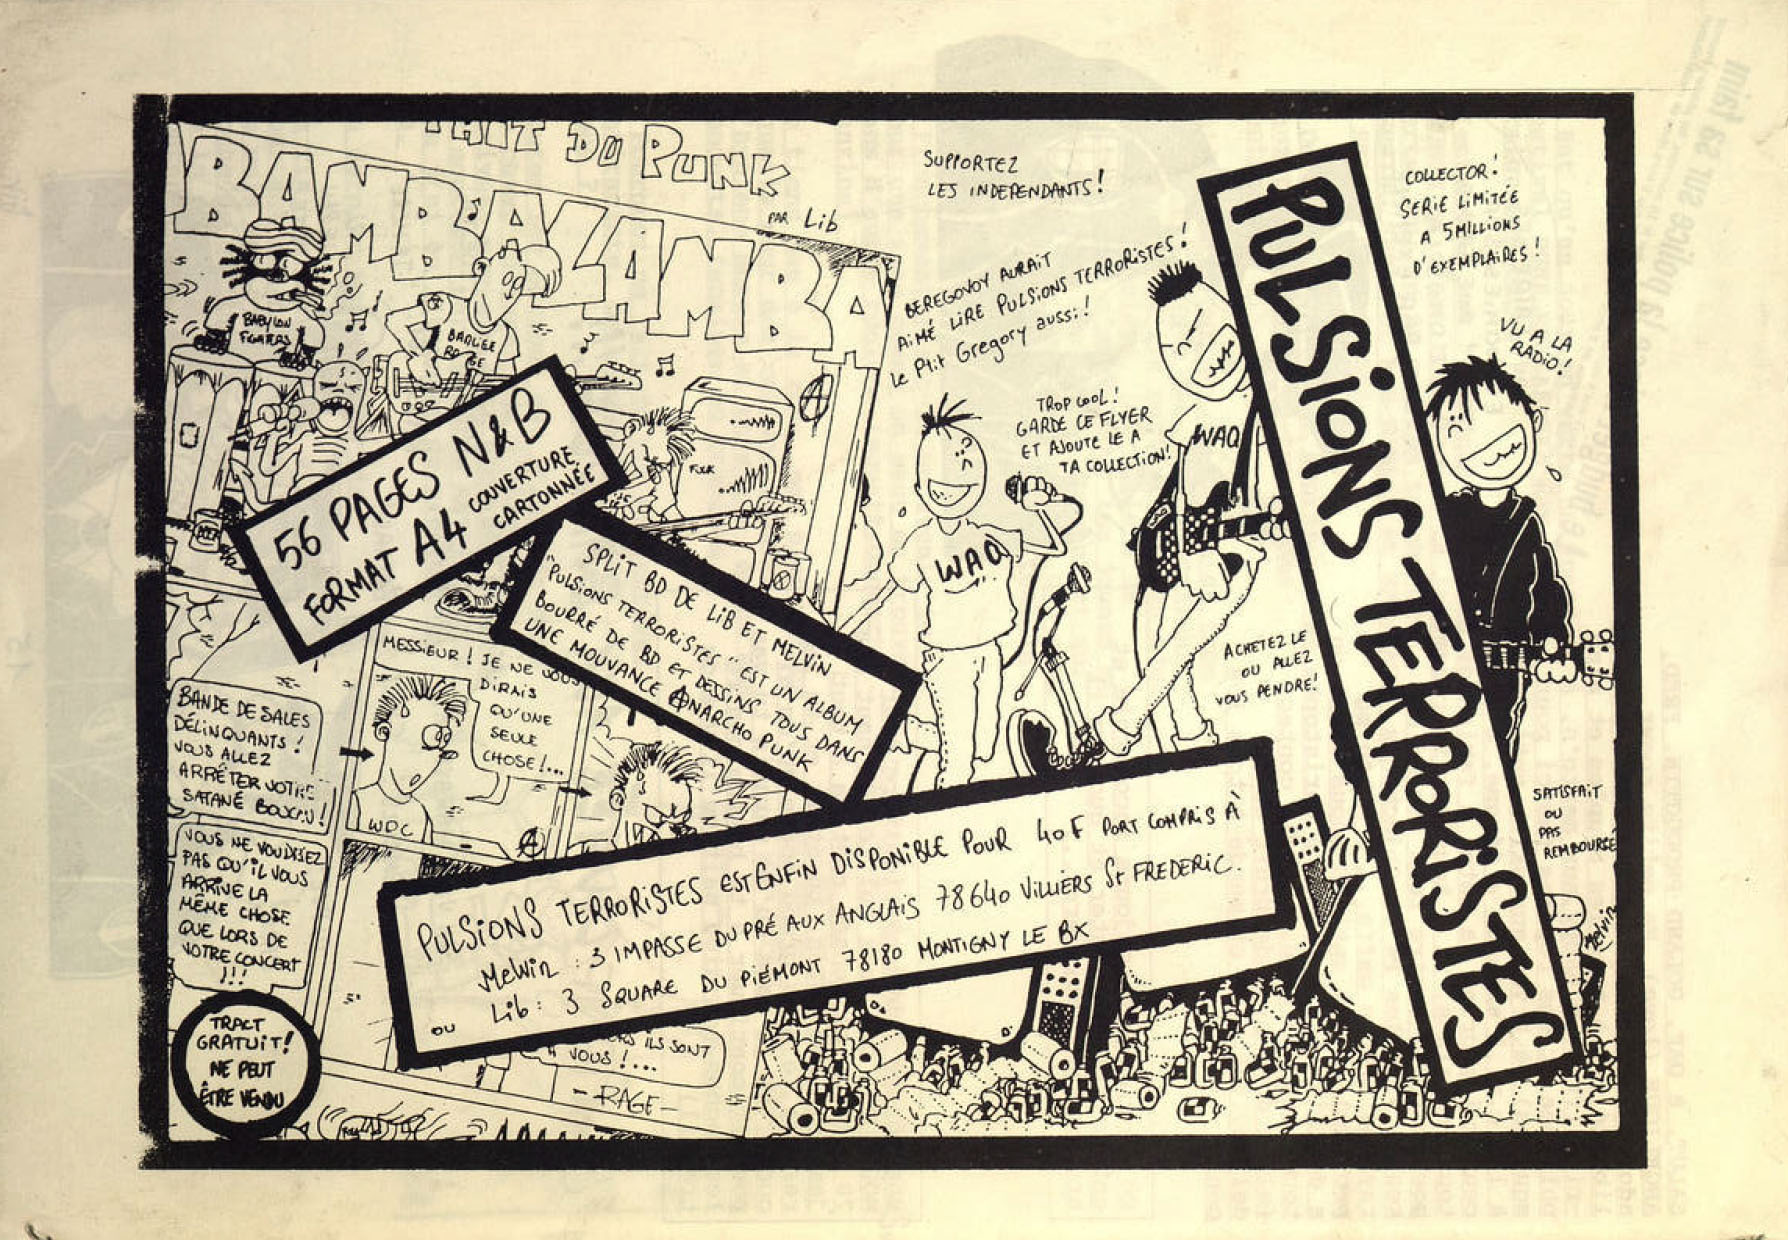 FAIT DU PUNK
BAMBALAMBA
PAR Lib
BABYLON
FIGHTERS
56 PAGES N&B
FORMAT A4 COUVERTURE
CARTONNÉE
SPLIT BD DE LIB ET MELVIN
"PULSIONS TERRORISTES" EST UN ALBUM
BOURRÉ DE BD ET DESSINS TOUS DANS
UNE MOUVANCE ANARCHO PUNK
MESSIEUR ! JE NE VOUS
DIRAIS
QU'UNE
SEULE
CHOSE !...
WDC
BANDE DE SALES
DÉLINQUANTS !
VOUS ALLEZ
ARRÊTER VOTRE
SATANÉ BOUCAN !
VOUS NE VOUDRIEZ
PAS QU'IL VOUS
ARRIVE LA
MÊME CHOSE
QUE LORS DE
VOTRE CONCERT
!!!
TRACT
GRATUIT!
NE PEUT
ÊTRE VENDU
ILS SONT
À VOUS !...
- RAGE -
SUPPORTEZ
LES INDEPENDANTS !
BEREGOVOY AURAIT
AIMÉ LIRE PULSIONS TERRORISTES !
Le Ptit Gregory aussi !
TROP COOL !
GARDE CE FLYER
ET AJOUTE LE A
TA COLLECTION!
WAQ
WAQ
ACHETEZ LE
OU ALLEZ
VOUS PENDRE!
PULSIONS TERRORISTES
COLLECTOR !
SERIE LIMITÉE
A 5 MILLIONS
D'EXEMPLAIRES !
VU A LA
RADIO !
SATISFAIT
OU
PAS
REMBOURSÉ
Melvin
PULSIONS TERRORISTES EST ENFIN DISPONIBLE POUR 40F PORT COMPRIS À
Melvin : 3 IMPASSE DU PRÉ AUX ANGLAIS 78640 VILLIERS St FREDERIC.
OU Lib : 3 SQUARE DU PIÉMONT 78180 MONTIGNY LE BX